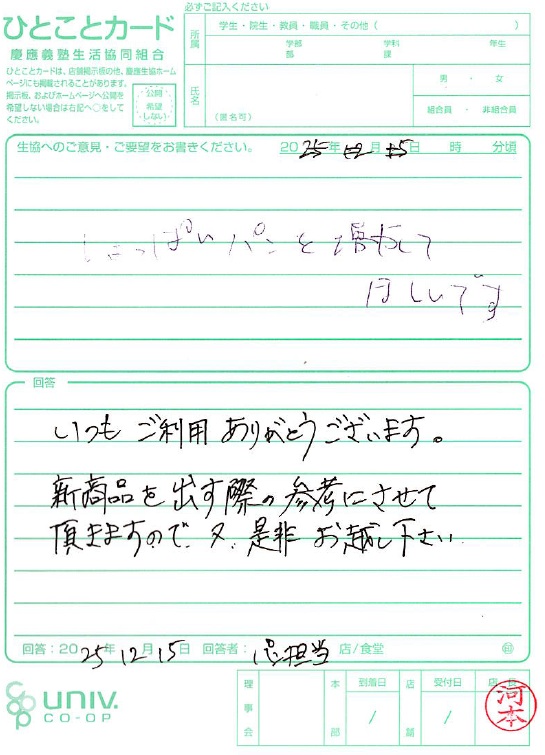 ひとことカード
慶應義塾生活協同組合
ひとことカードは、店頭掲示板の他、慶應生協ホーム
ページにも掲載されることがあります。
掲示板、およびホームページへ公開を
希望しない場合は右記へ○をして
ください。
公開
希望
しない
必ずご記入ください
所属
学生・院生・教員・職員・その他（ ）
学部 学科 年生
部 課
氏名
（匿名可）
男 ・ 女
組合員 ・ 非組合員
生協へのご意見・ご要望をお書きください。 2025年12月15日 時 分頃
しょっぱいパンを増やして
ほしいです
回答
いつもご利用ありがとうございます。
新商品を出す際の参考にさせて
頂きますので、又、是非お越し下さい
回答：2025年12月15日 回答者： パン担当 店/食堂 ㊞
UNIV.
CO-OP
理事会
本部
到着日
/
店舗
受付日
/
店長
河本